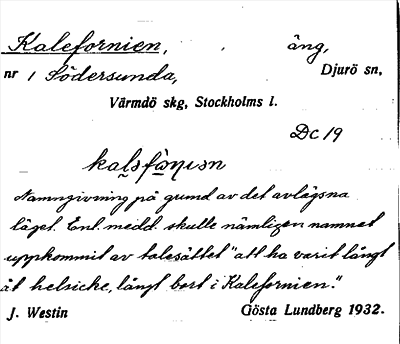 Kalefornien, äng,
nr 1 Södersunda, Djurö sn,
Värmdö skg, Stockholms l.
Dc 19
kalsfo̱nıɛn
Namngivning på grund av det avlägsna
läget. Enl. medd. skulle nämligen namnet
uppkommit av talesättet "att ha varit långt
åt helsicke, långt bort i Kalefornien."
J. Westin Gösta Lundberg 1932.